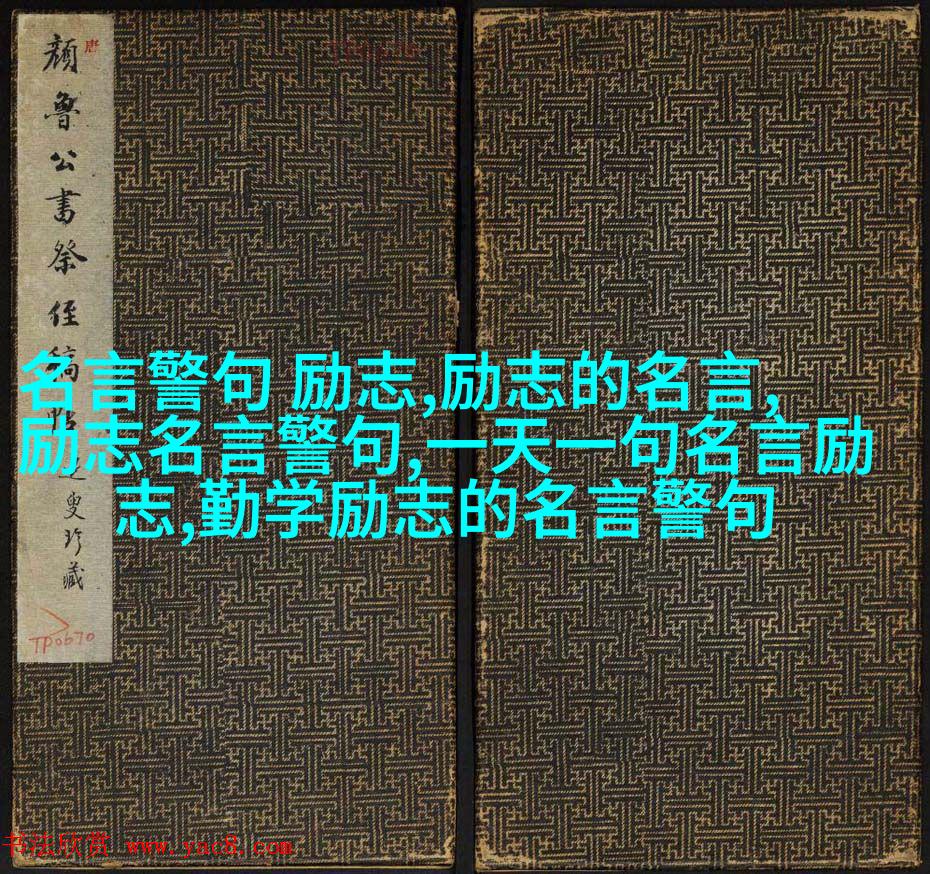 唐
颜鲁公书祭侄稿
叟珍藏
TP0670
名言警句 励志,励志的名言,
励志名言警句,一天一句名言励
志,勤学励志的名言警句
书法欣赏 www.yac8.com